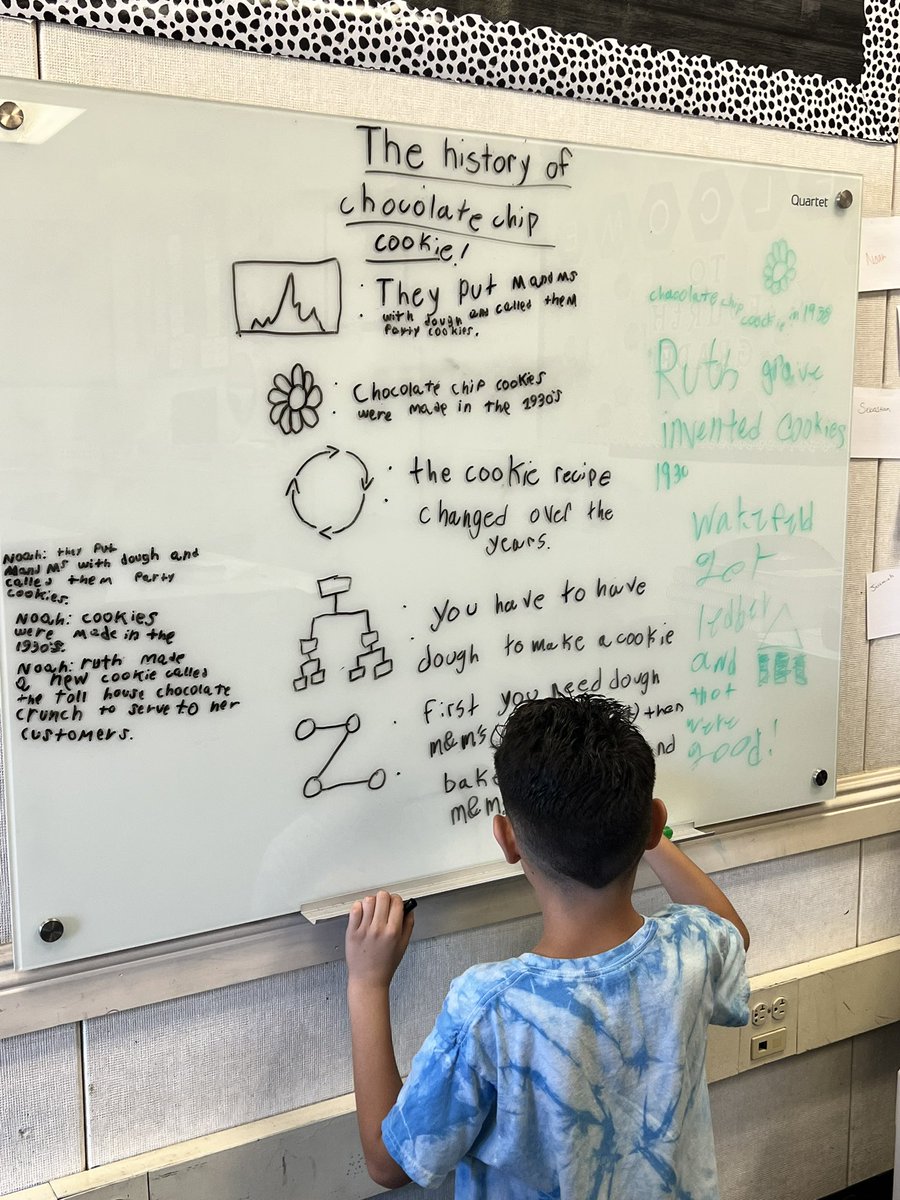 The history of
chocolate chip
cookie!
Quartet
They put mandms
with dough and called them
Party cookies.
Chocolate chip cookies
were made in the 1930's
the cookie recipe
changed over the
years.
you have to have
dough to make a cookie
first you need dough
m&m's then
bak and
m&m
Noah: they put
Mand Ms with dough and
called them party
cookies.
Noah: cookies
were made in the
1930's.
Noah: ruth made
a new cookie called
the toll house chocolate
crunch to serve to her
customers.
chocolate chip
in 1938
Ruth
invented cookies
1930
and
good!
Noah
Sebastian